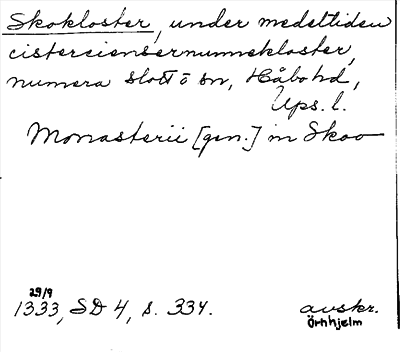 Skokloster, under medeltiden
cisterciensernunnekloster,
numera slott o sn, Håbo hd,
Ups. l.
Monasterii [gen.] in Skoo
29/9
1333, SD 4, s. 334.
avskr.
Örnhjelm